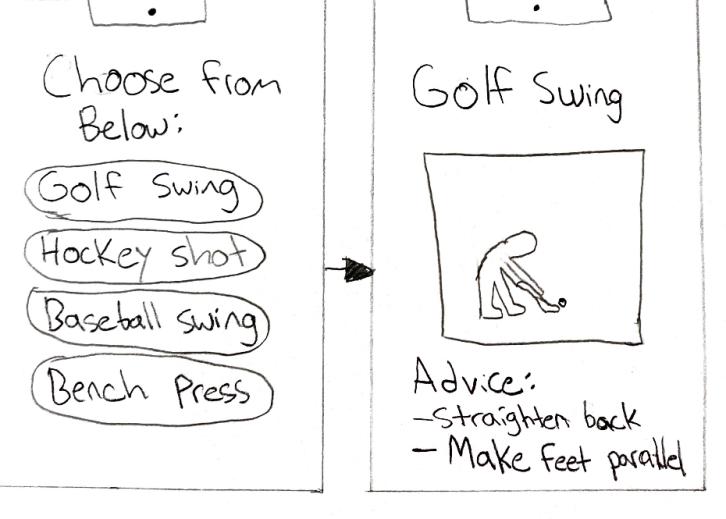 Choose from
Below:
Golf Swing
Hockey shot
Baseball swing
Bench Press
Golf Swing
Advice:
- straighten back
- Make feet parallel